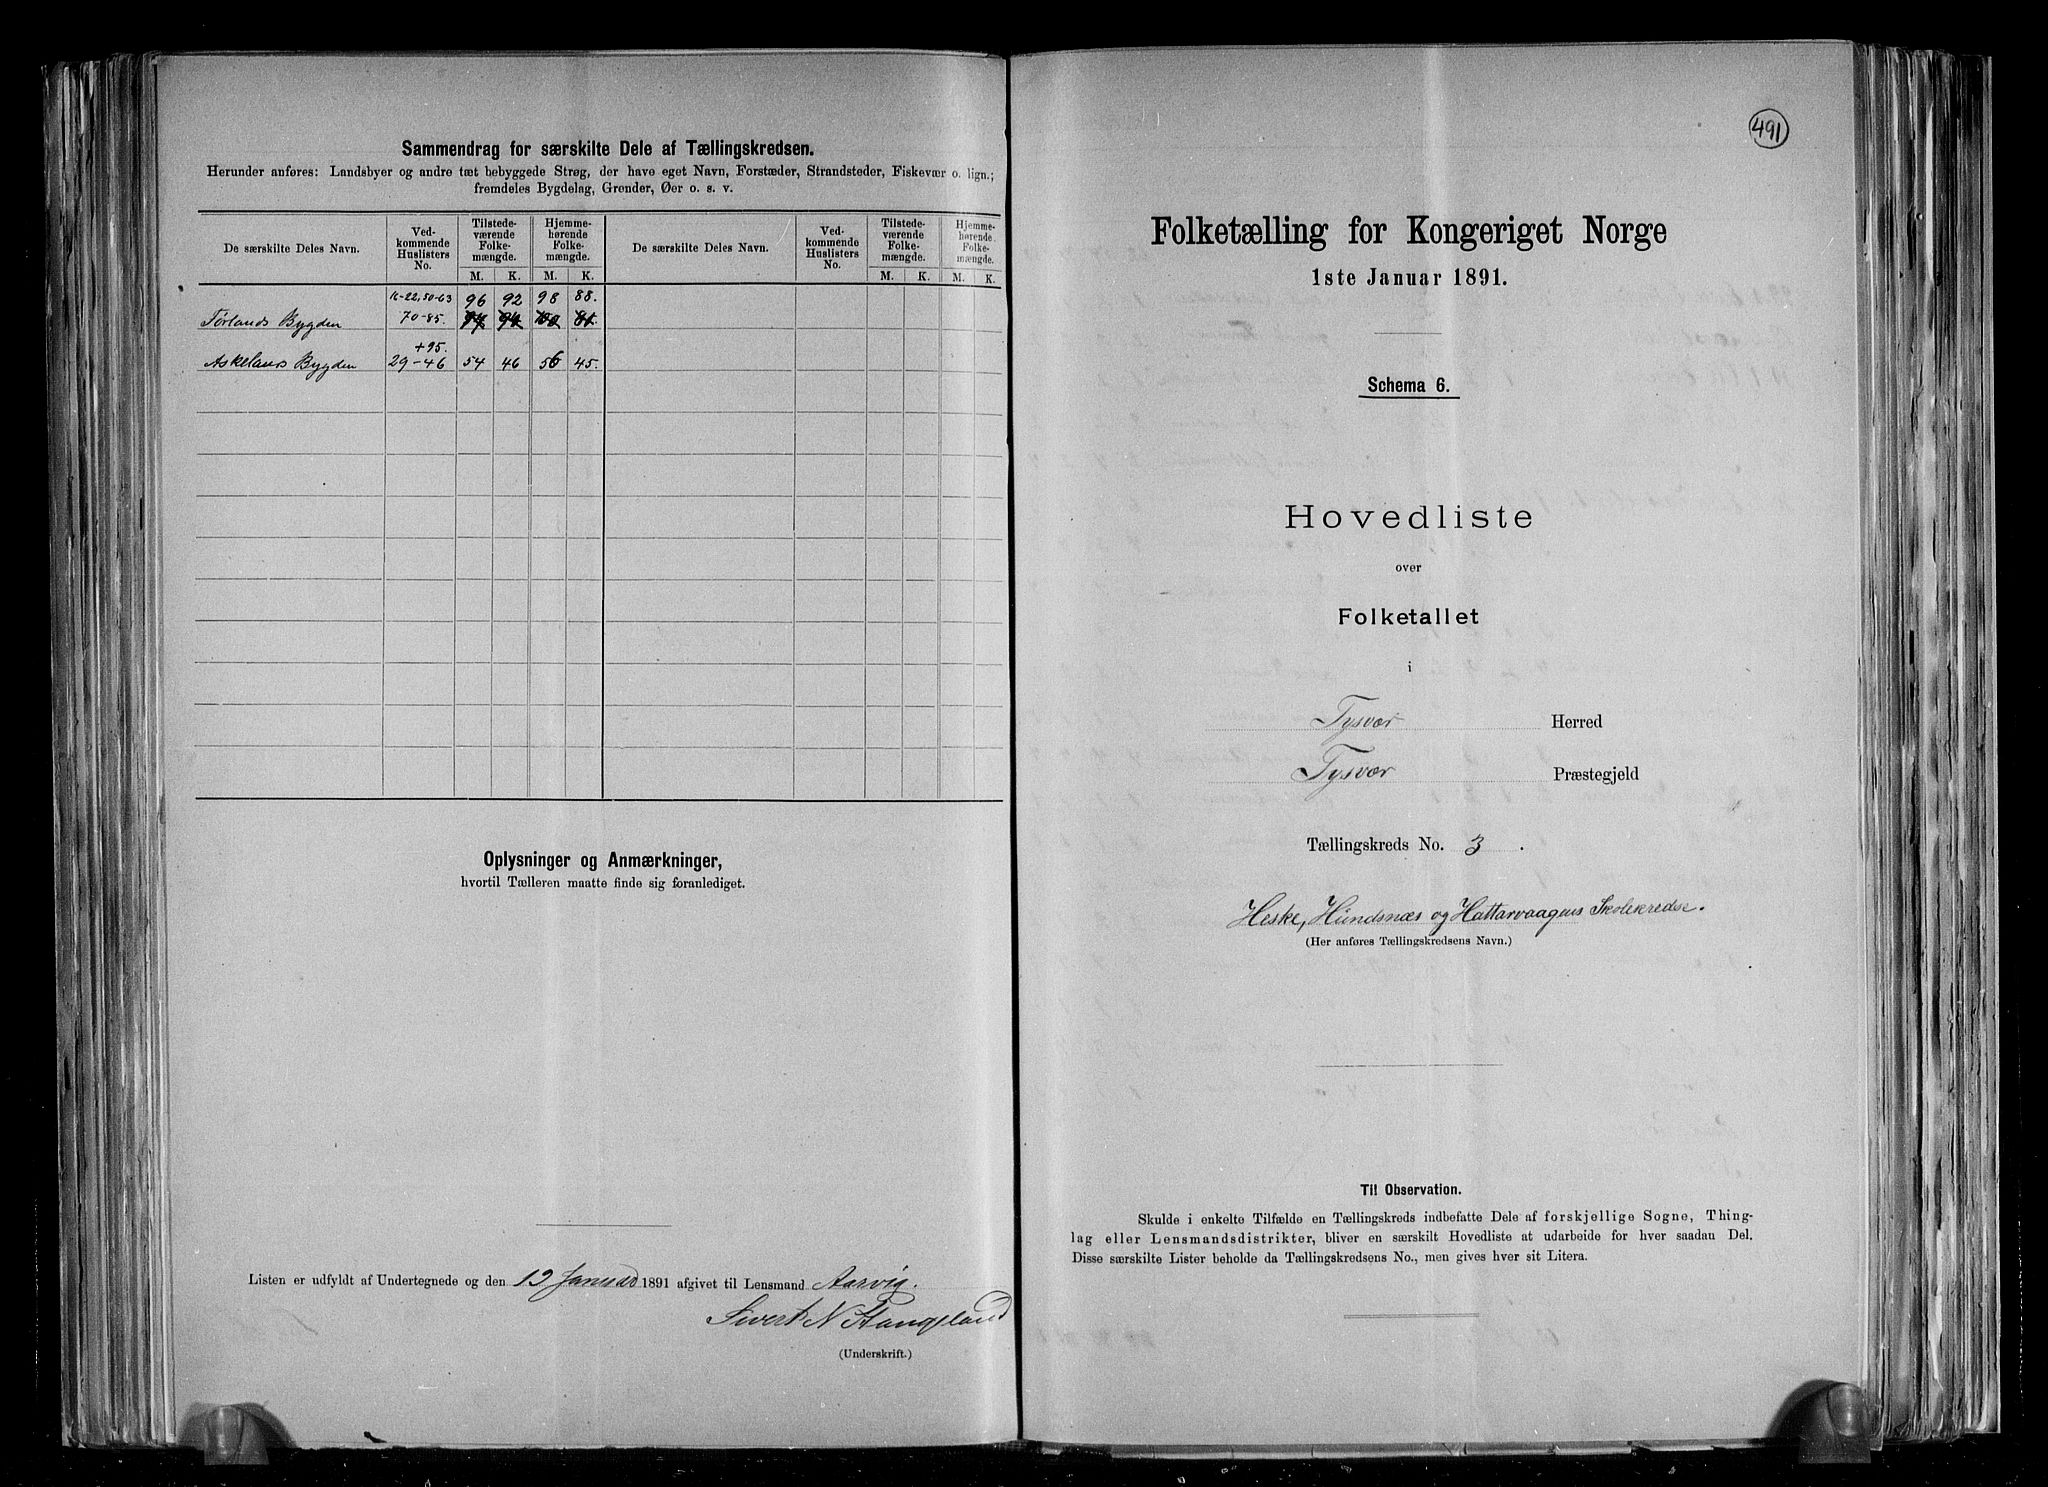 Sammendrag for særskilte Dele af Tællingskredsen.
Herunder anføres: Landsbyer og andre tæt bebyggede Strøg, der have eget Navn, Forstæder, Strandsteder, Fiskevær o. lign.;
fremdeles Bygdelag, Grender, Øer o. s. v.
De særskilte Deles Navn.
Ved-
kommende
Huslisters
No.
Tilstede-
værende
Folke-
mængde.
Hjemme-
hørende
Folke-
mængde.
De særskilte Deles Navn.
Ved-
kommende
Huslisters
No.
Tilstede-
værende
Folke-
mængde.
Hjemme-
hørende
Folke-
mængde.
M. K. M. K. M. K. M. K.
16-22, 50-63 96 92 98 88.
Førlands Bygden 70-85. 97 94 100 81.
+95.
Askelands Bygden 29-46 54 46 56 45.
Oplysninger og Anmærkninger,
hvortil Tælleren maatte finde sig foranlediget.
Listen er udfyldt af Undertegnede og den 12 Januar 1891 afgivet til Lensmand Aarvig.
Sivert N Stangeland
(Underskrift.)
491
Folketælling for Kongeriget Norge
1ste Januar 1891.
Schema 6.
Hovedliste
over
Folketallet
i
Tysvær Herred
Tysvær Præstegjeld
Tællingskreds No. 3.
Heske, Hundsnæs og Hattarvaagens Skolekredse.
(Her anføres Tællingskredsens Navn.)
Til Observation.
Skulde i enkelte Tilfælde en Tællingskreds indbefatte Dele af forskjellige Sogne, Thing-
lag eller Lensmandsdistrikter, bliver en særskilt Hovedliste at udarbeide for hver saadan Del.
Disse særskilte Lister beholde da Tællingskredsens No., men gives hver sit Litera.